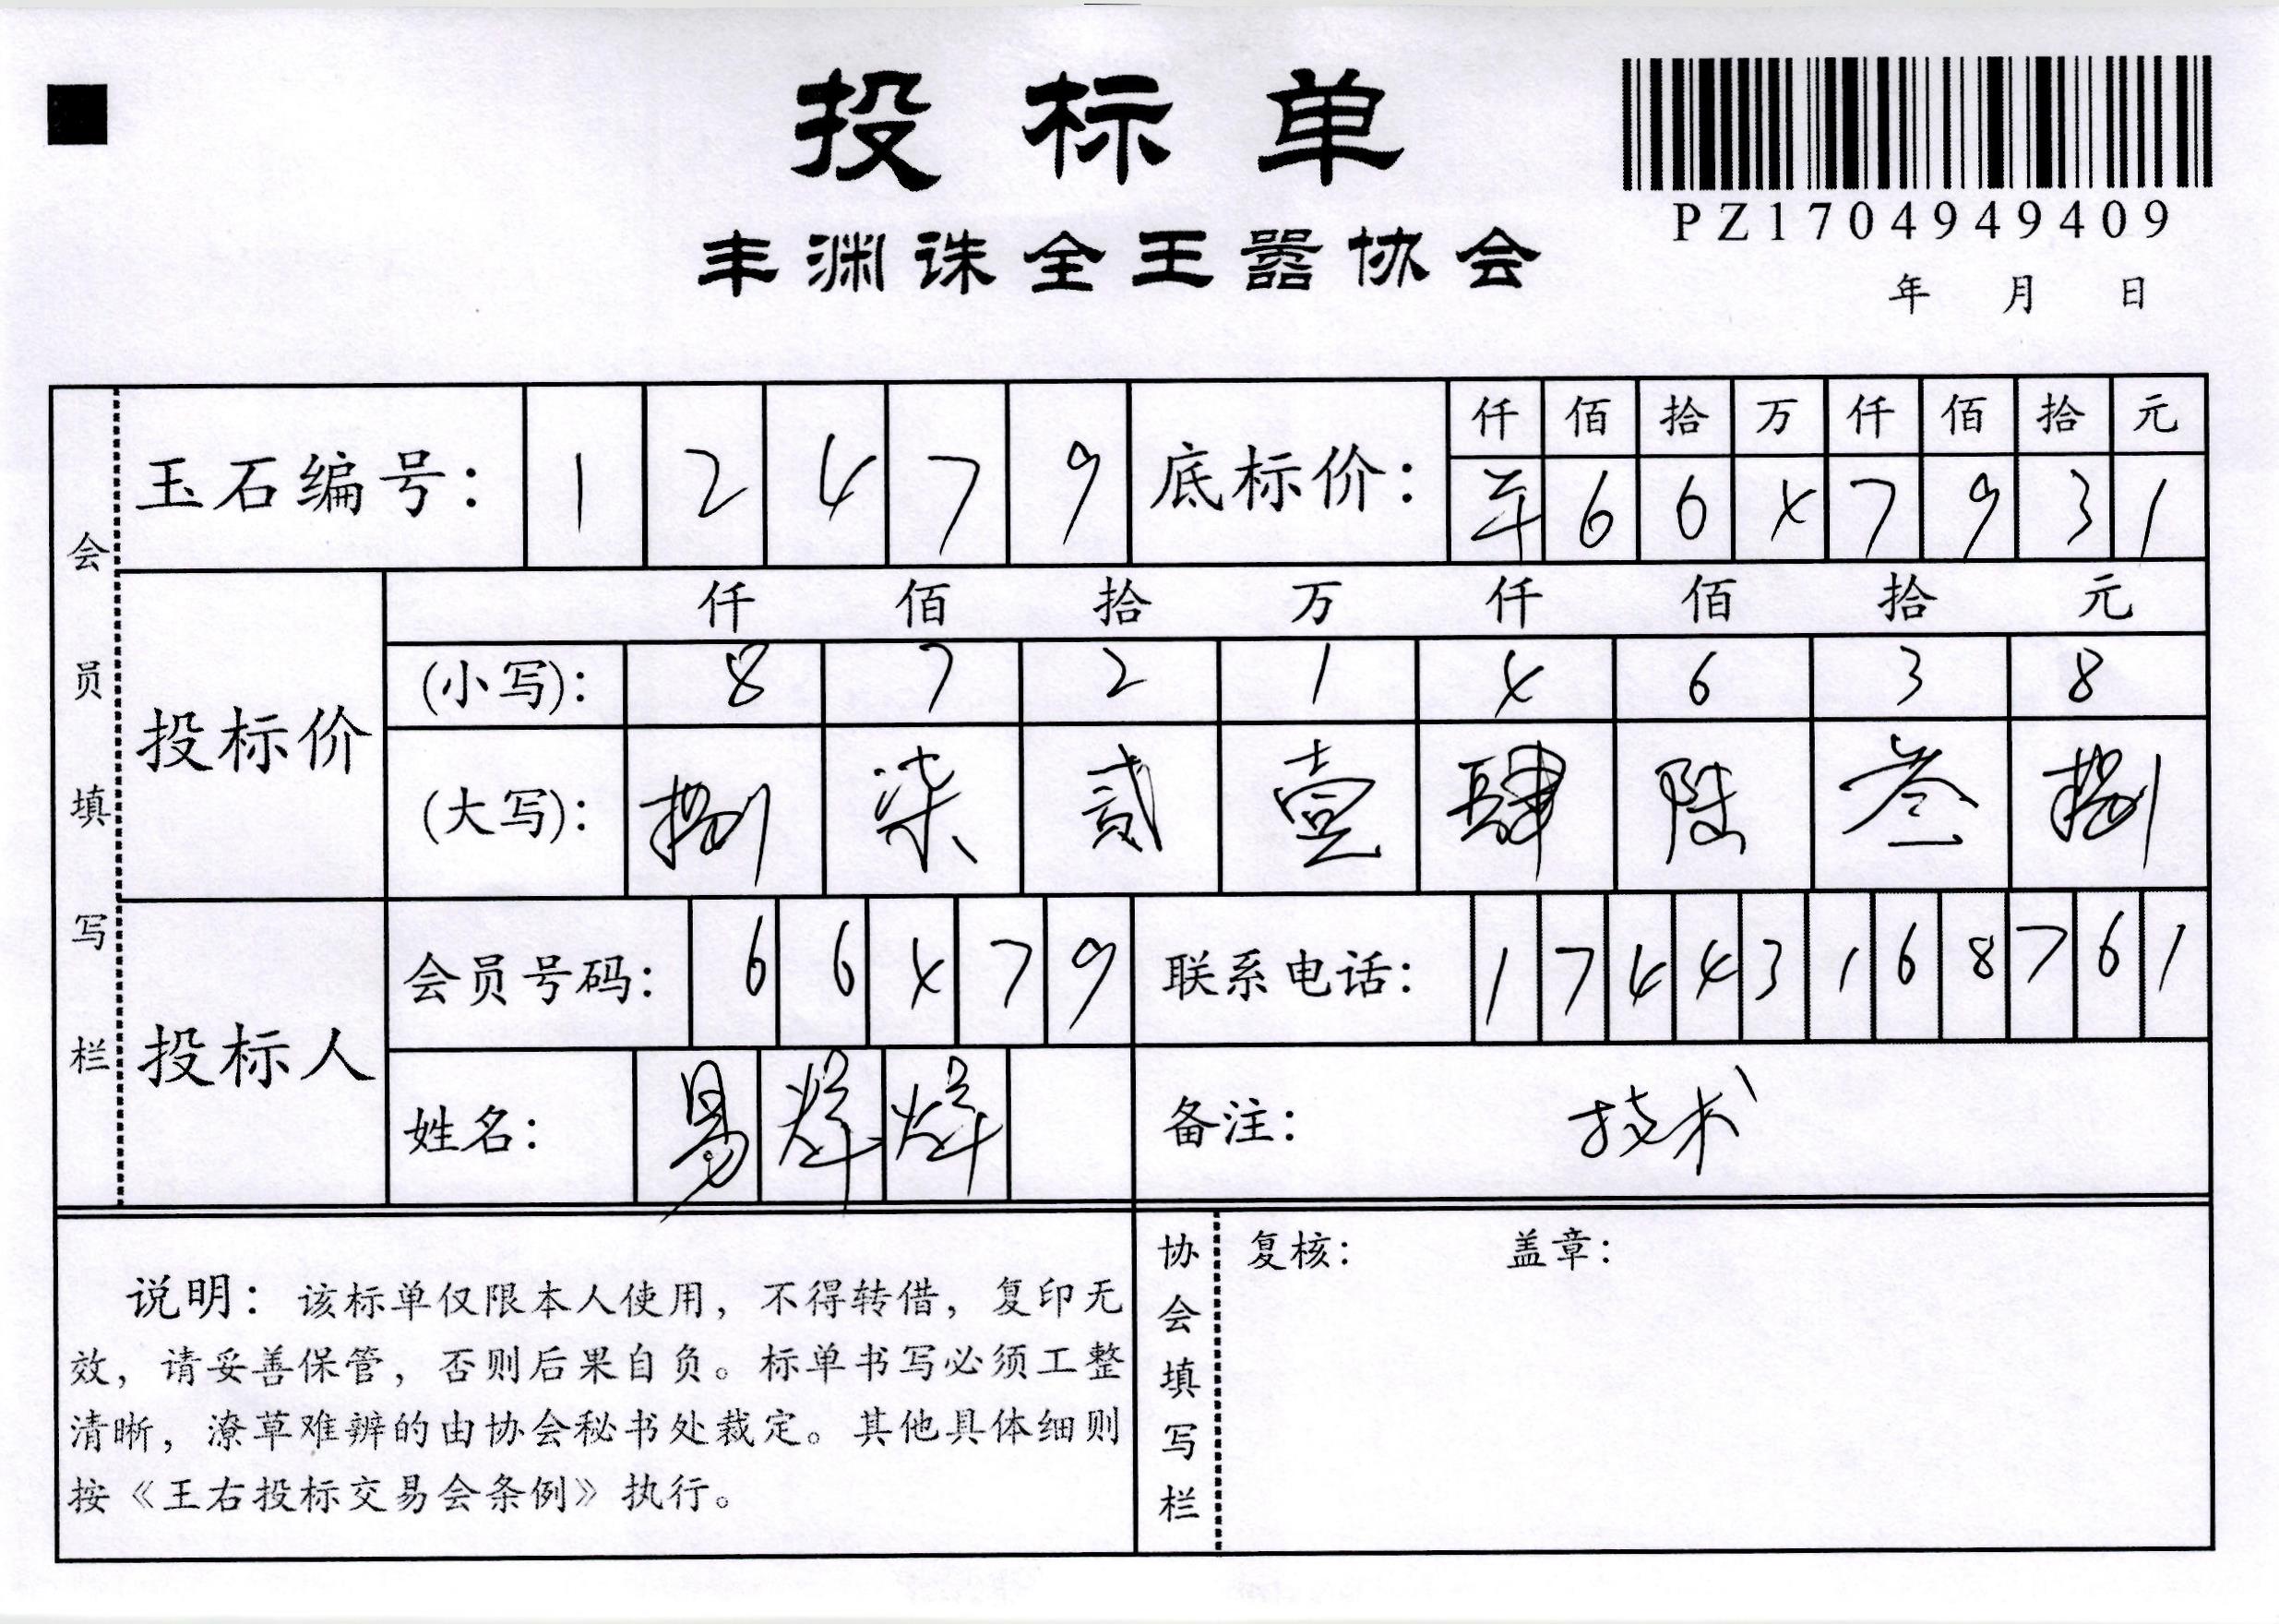 投标单
PZ1704949409
丰渊诛全王嚣协会
年 月 日
会员填写栏
玉石编号： 1 2 4 7 9
底标价： 仟 佰 拾 万 仟 佰 拾 元
6 6 4 7 9 3 1
投标价 仟 佰 拾 万 仟 佰 拾 元
(小写)： 8 7 2 1 4 6 3 8
(大写)： 捌 柒 贰 壹 肆 陆 叁 捌
投标人
会员号码： 6 6 4 7 9
联系电话： 1 7 4 4 3 1 6 8 7 6 1
姓名： 易
备注： 技术
说明：该标单仅限本人使用，不得转借，复印无
效，请妥善保管，否则后果自负。标单书写必须工整
清晰，潦草难辨的由协会秘书处裁定。其他具体细则
按《王右投标交易会条例》执行。
协会填写栏
复核： 盖章：